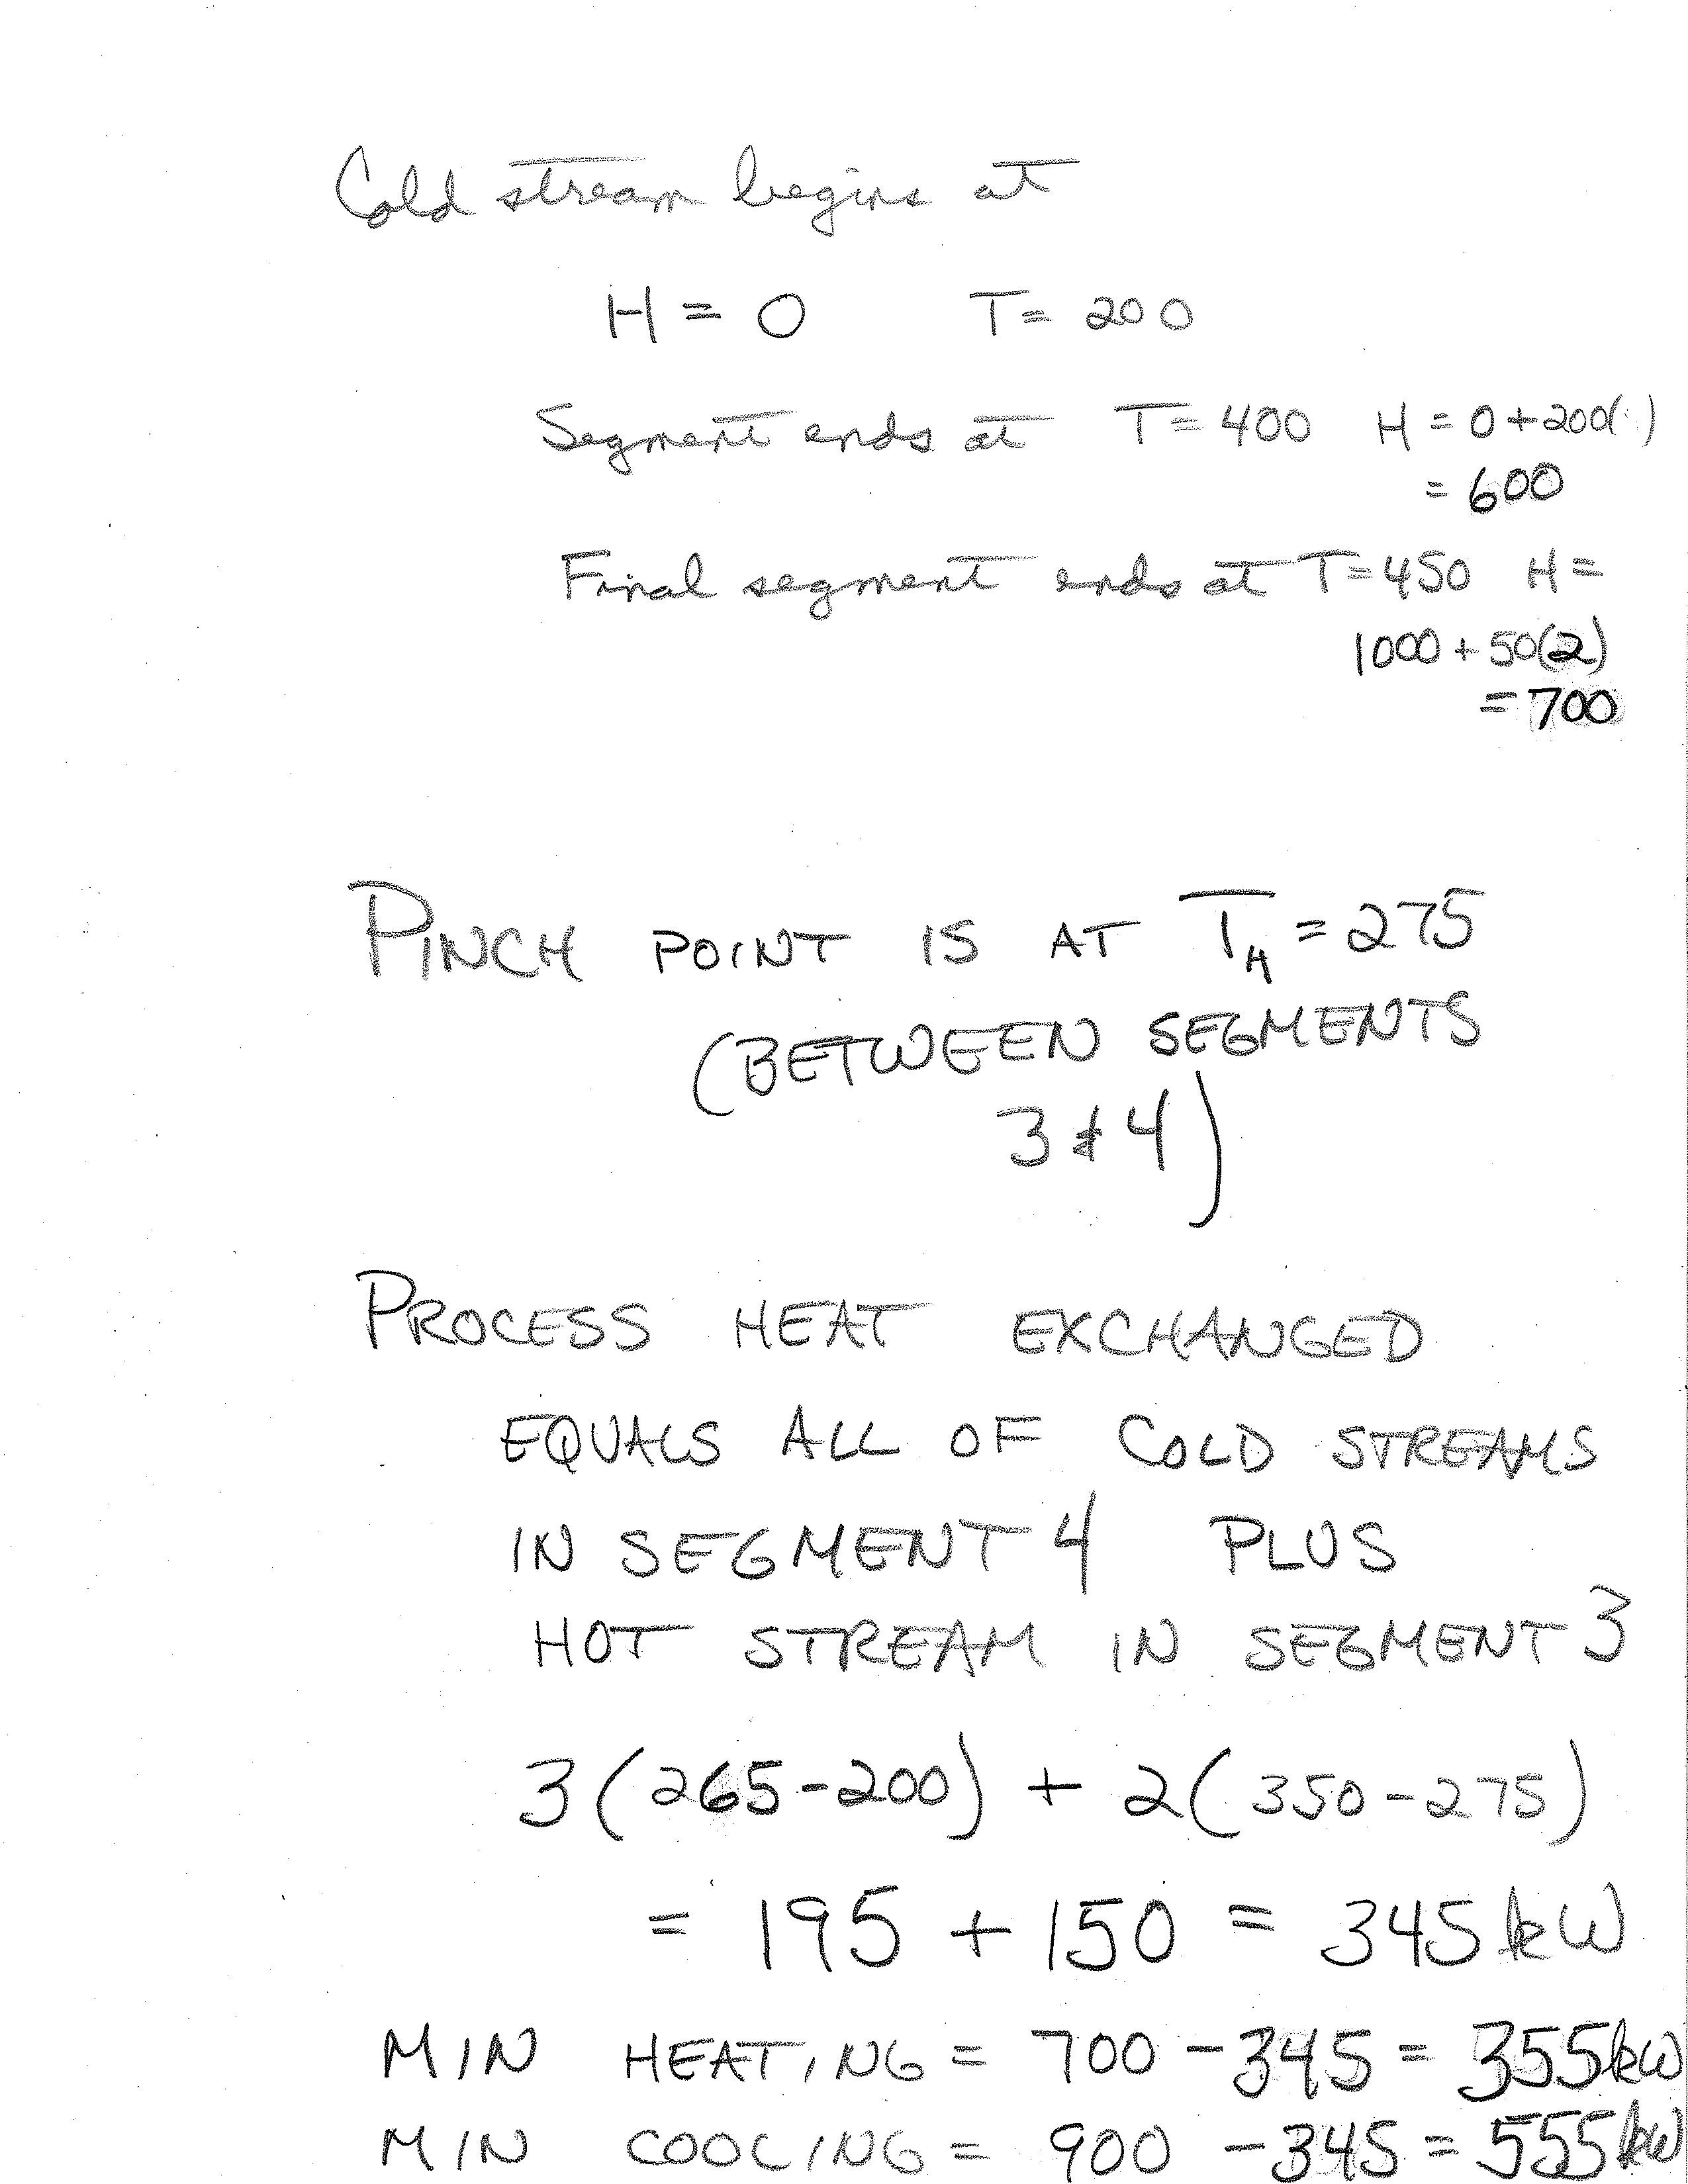 Cold stream begins at
H = 0 T = 200
Segment ends at T = 400 H = 0 + 200( )
= 600
Final segment ends at T = 450 H =
1000 + 50(2)
= 700
PINCH POINT IS AT T_H = 275
(BETWEEN SEGMENTS
3 & 4)
PROCESS HEAT EXCHANGED
EQUALS ALL OF COLD STREAMS
IN SEGMENT 4 PLUS
HOT STREAM IN SEGMENT 3
3(265-200) + 2(350-275)
= 195 + 150 = 345 kW
MIN HEATING = 700 - 345 = 355 kW
MIN COOLING = 900 - 345 = 555 kW